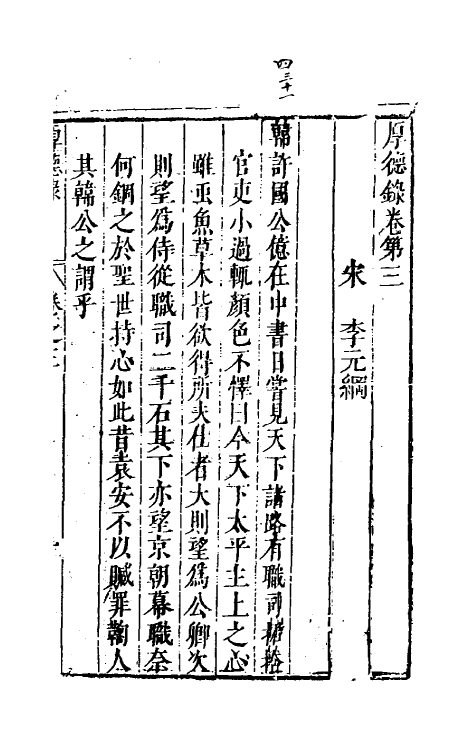 四三十一
厚德錄卷第三
宋　李元綱
韓許國公億在中書日嘗見天下諸路有職司捃拾
官吏小過輒顏色不懌曰今天下太平主上之心
雖虫魚草木皆欲得所夫仕者大則望爲公卿次
則望爲侍從職司二千石其下亦望京朝幕職柰
何錮之於聖世持心如此昔袁安不以贓罪鞫人
其韓公之謂乎
厚德錄　卷之三